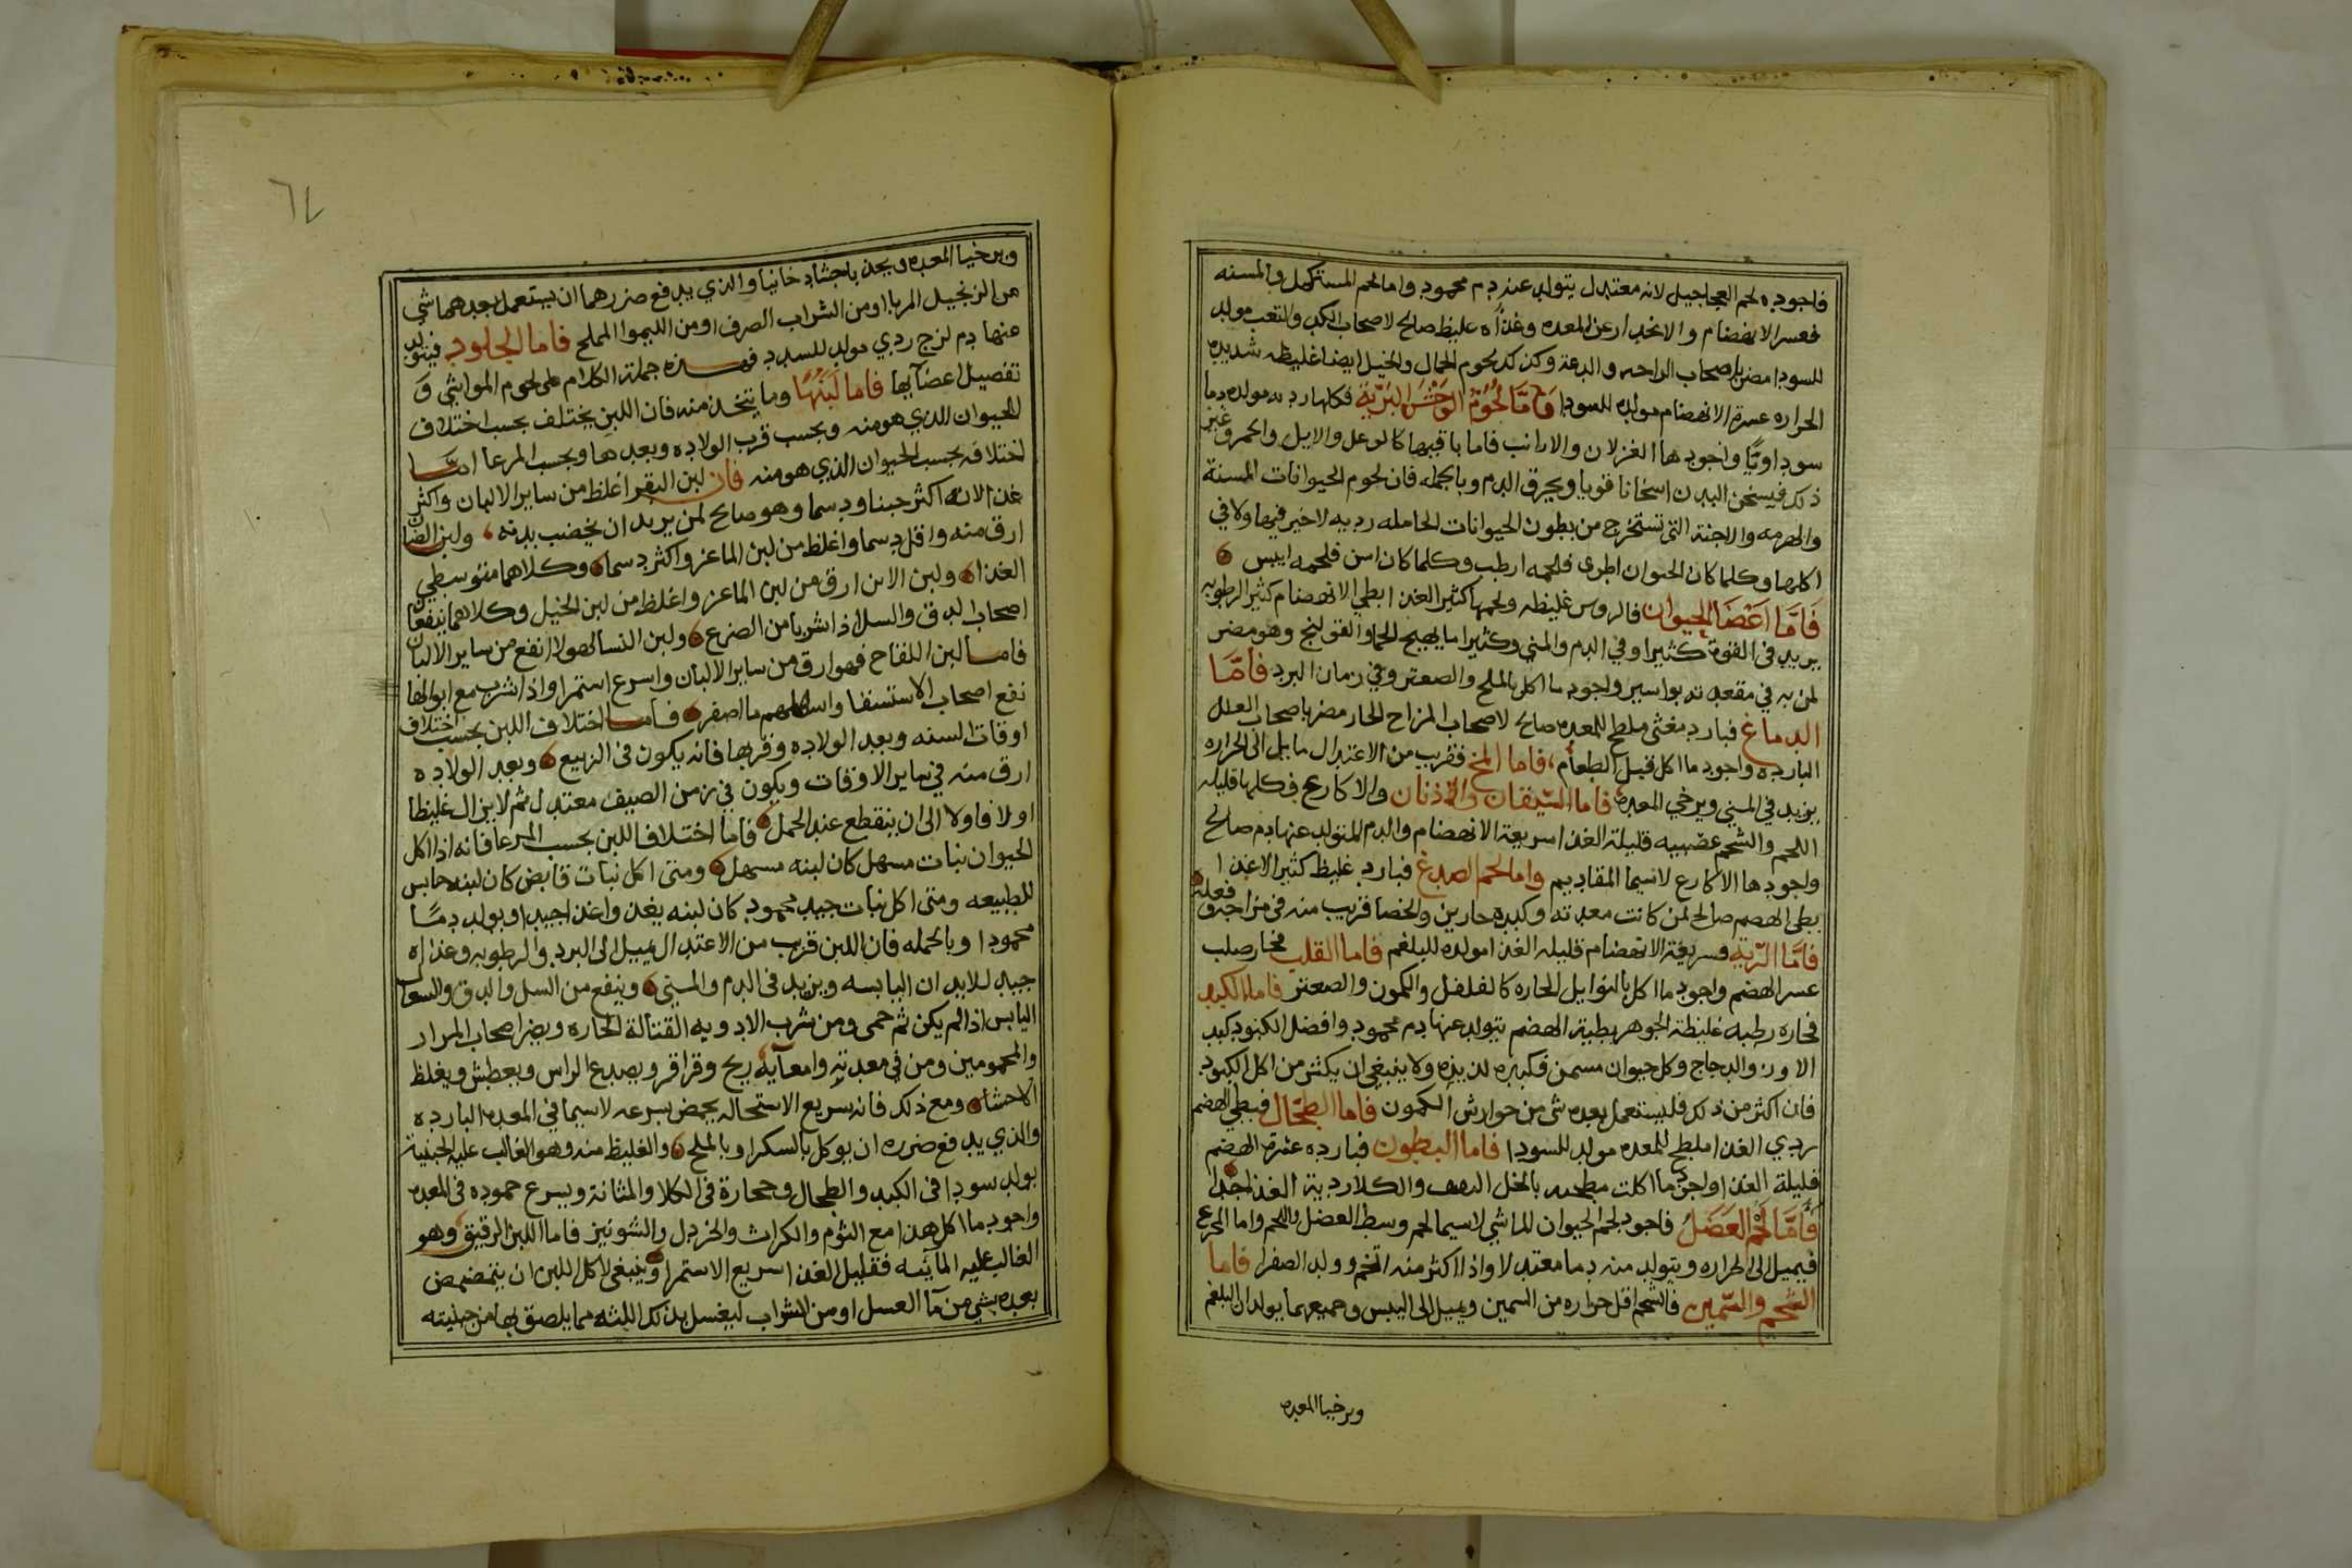 فاجوده لحم العجاجيل لانه معتدل يتولد عنه دم محمود واما لحم المستكمل والمسنه
فعسر الانهضام والانحدار عن المعده وغذاه غليظ صالح لاصحاب الكد والتعب مولد
للسودا مضر باصحاب الراحه والدعة وكذلك لحوم الجمال والخيل ايضا غليظه شديده
الحراره عسرة الانهضام مولده للسودا فاما لحوم الوحش البرية فكلها رديه مولده دما
سوداويا واجودها الغزلان والارانب فاما باقيها كالوعل والايل والحمر وغير
ذلك فيسخن البدن اسخانا قويا ويحرق الدم وبالجمله فان لحوم الحيوانات المسنة
والهرمه والاجنة التي تستخرج من بطون الحيوانات الحامله رديه لاخير فيها ولا في
اكلها وكلما كان الحيوان اطرى فلحمه ارطب وكلما كان اسن فلحمه ايبس
فاما اعضا الحيوان فالروس غليظه ولحمها كثير الغذا بطي الانهضام كثير الرطوبه
يزيد في القوة كثيرا وفي الدم والمني وكثيرا ما يهيج الحما والقولنج وهو مضر
لمن به في مقعدته بواسير واجود ما اكل بالملح والصعتر وفي زمان البرد فاما
الدماغ فبارد مغثي ملطخ للمعده صالح لاصحاب المزاج الحار مضر باصحاب العلل
البارده واجود ما اكل قبل الطعام، فاما المخ فقريب من الاعتدال مايل الى الحراره
يزيد في المني ويرخي المعده فاما السيقان والاذنان والاكارع فكلها قليله
اللحم والشحم عصبيه قليلة الغذا سريعة الانهضام والدم المتولد عنها دم صالح
واجودها الاكارع لاسيما المقاديم واما لحم الصدغ فبارد غليظ كثير الاغذا
بطي الهضم صالح لمن كانت معدته وكبده حارين والخصا قريب منه في مزاجه وفعله
فاما الرية فسريعة الانهضام قليله الغذا مولده للبلغم فاما القلب فحار صلب
عسر الهضم واجود ما اكل بالتوابل الحاره كالفلفل والكمون والصعتر فاما الكبد
فحاره رطبه غليظة الجوهر بطية الهضم يتولد عنها دم محمود وافضل الكبود كبد
الاوز والدجاج وكل حيوان مسمن فكبده لذيذه ولا ينبغي ان يكثر من اكل الكبود
فان اكثر من ذلك فليستعمل بعده شي من جوارش الكمون فاما الطحال فبطي الهضم
ردي الغذا ملطخ للمعده مولد للسودا فاما البطون فبارده عسرة الهضم
قليلة الغذا واجود ما اكلت مطجنه بالخل والكلا ردية الغذا جدا
فاما لحم العضل فاجود لحم الحيوان الماشي لاسيما لحم وسط العضل واللحم واما الضرع
فيميل الى الحراره ويتولد منه دما معتدلا واذا اكثر منه اتخم وولد الصفرا فاما
الشحم والسمين فالشحم اقل حراره من السمين ويميل الى اليبس وجميعهما يولدان البلغم
ويرخيا المعده
ويرخيا المعده ويحدثا جشا دخانيا والذي يدفع ضررهما ان يستعمل بعدهما شي
من الزنجبيل المربا او من الشراب الصرف او من الليموا المملح فاما الجلود فيتولد
عنها دم لزج ردي مولد للسدد فهذه جملة الكلام على لحوم المواشي و
تفصيل اعضايها فاما لبنها وما يتخذ منه فان اللبن يختلف بحسب اختلاف
الحيوان الذي هو منه وبحسب قرب الولاده وبعدها وبحسب المرعا اما
اختلافه بحسب الحيوان الذي هو منه فان لبن البقر اغلظ من ساير الالبان واكثر
غذا لانه اكثر جبنا ودسما وهو صالح لمن يريد ان يخصب بدنه، ولبن الضان
ارق منه واقل دسما واغلظ من لبن الماعز واكثر دسما وكلاهما متوسطي
الغذا ولبن الاتن ارق من لبن الماعز واغلظ من لبن الخيل وكلاهما ينفعا
اصحاب الدق والسل اذا شربا من الضرع ولبن النسا لهولا انفع من ساير الالبان
فاما لبن اللقاح فهو ارق من ساير الالبان واسرع استمرا واذا شرب مع ابوالها
نفع اصحاب الاستسقا واسهلهم ما اصفر فاما اختلاف اللبن بحسب اختلاف
اوقات السنه وبعد الولاده وقربها فانه يكون في الربيع وبعد الولاده
ارق منه في ساير الاوقات ويكون في زمن الصيف معتدل ثم لايزال غليظا
اولا فاولا الى ان ينقطع عند الحمل فاما اختلاف اللبن بحسب المرعا فانه اذا اكل
الحيوان نبات مسهل كان لبنه مسهل ومتى اكل نبات قابض كان لبنه حابس
للطبيعه ومتى اكل نبات جيد محمود كان لبنه يغذوا غذا جيدا ويولد دما
محمودا وبالجمله فان اللبن قريب من الاعتدال يميل الى البرد والرطوبه وغذاه
جيد للابدان اليابسه ويزيد في الدم والمني وينفع من السل والدق والسعال
اليابس اذا لم يكن ثم حمى ومن شرب الادويه القتالة الحاره ويضر اصحاب المرار
والمحمومين ومن في معدته وامعايه ريح وقراقر ويصدع الراس ويعطش ويغلظ
الاحشا ومع ذلك فانه سريع الاستحاله يحمض بسرعه لاسيما في المعده البارده
والذي يدفع ضرره ان يوكل بالسكر او بالملح والغليظ منه وهو الغالب عليه الجبنية
يولد سودا في الكبد والطحال وحجارة في الكلا والمثانة ويسرع حموده في المعده
واجود ما اكل هذا مع الثوم والكراث والخردل والشونيز فاما اللبن الرقيق وهو
الغالب عليه المآئيه فقليل الغذا سريع الاستمرا وينبغي لاكل اللبن ان يتمضمض
بعده بشي من مآ العسل او من الشراب ليغسل بذلك اللثه مما يلصق بها من جبنيته